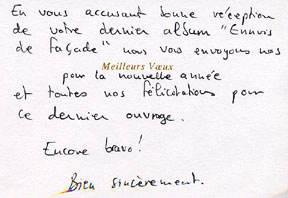 En vous accusant bonne réception
de votre dernier album "Ennuis
de façade" nous vous envoyons nos
Meilleurs Vœux
pour la nouvelle année
et toutes nos félicitations pour
ce dernier ouvrage.
Encore bravo!
Bien sincèrement.